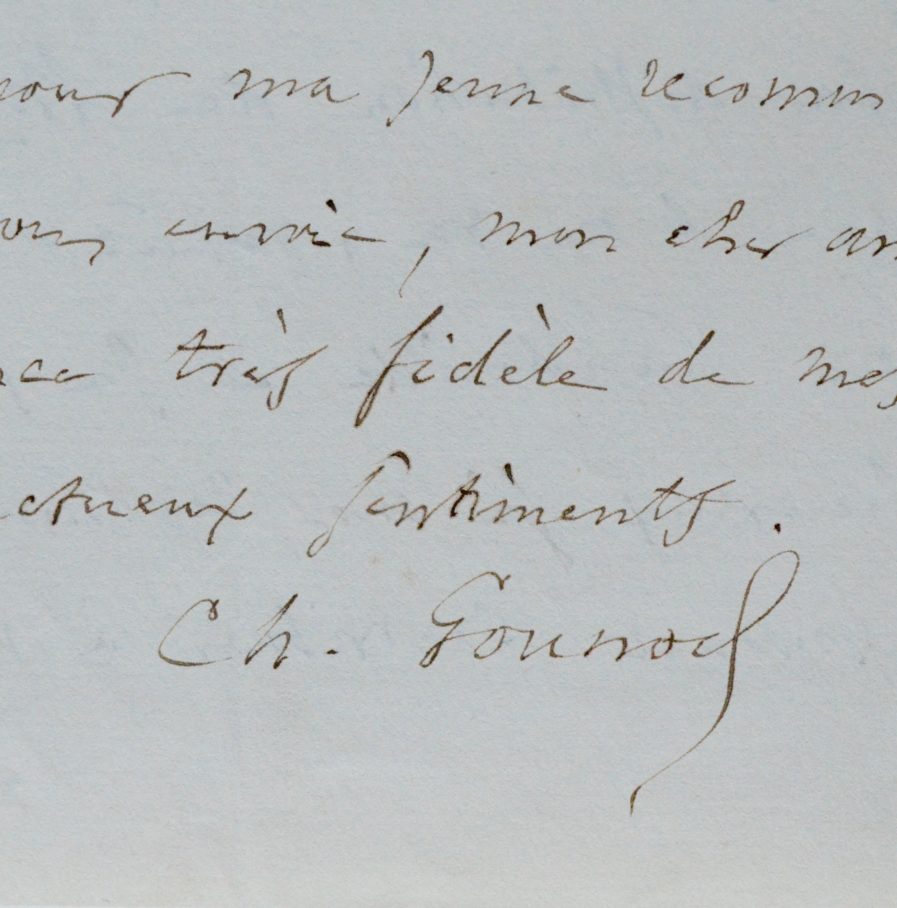 pour ma jeune recomm
vous envoie, mon cher am
nce très fidèle de mes
ctueux sentiments.
Ch. Gounod